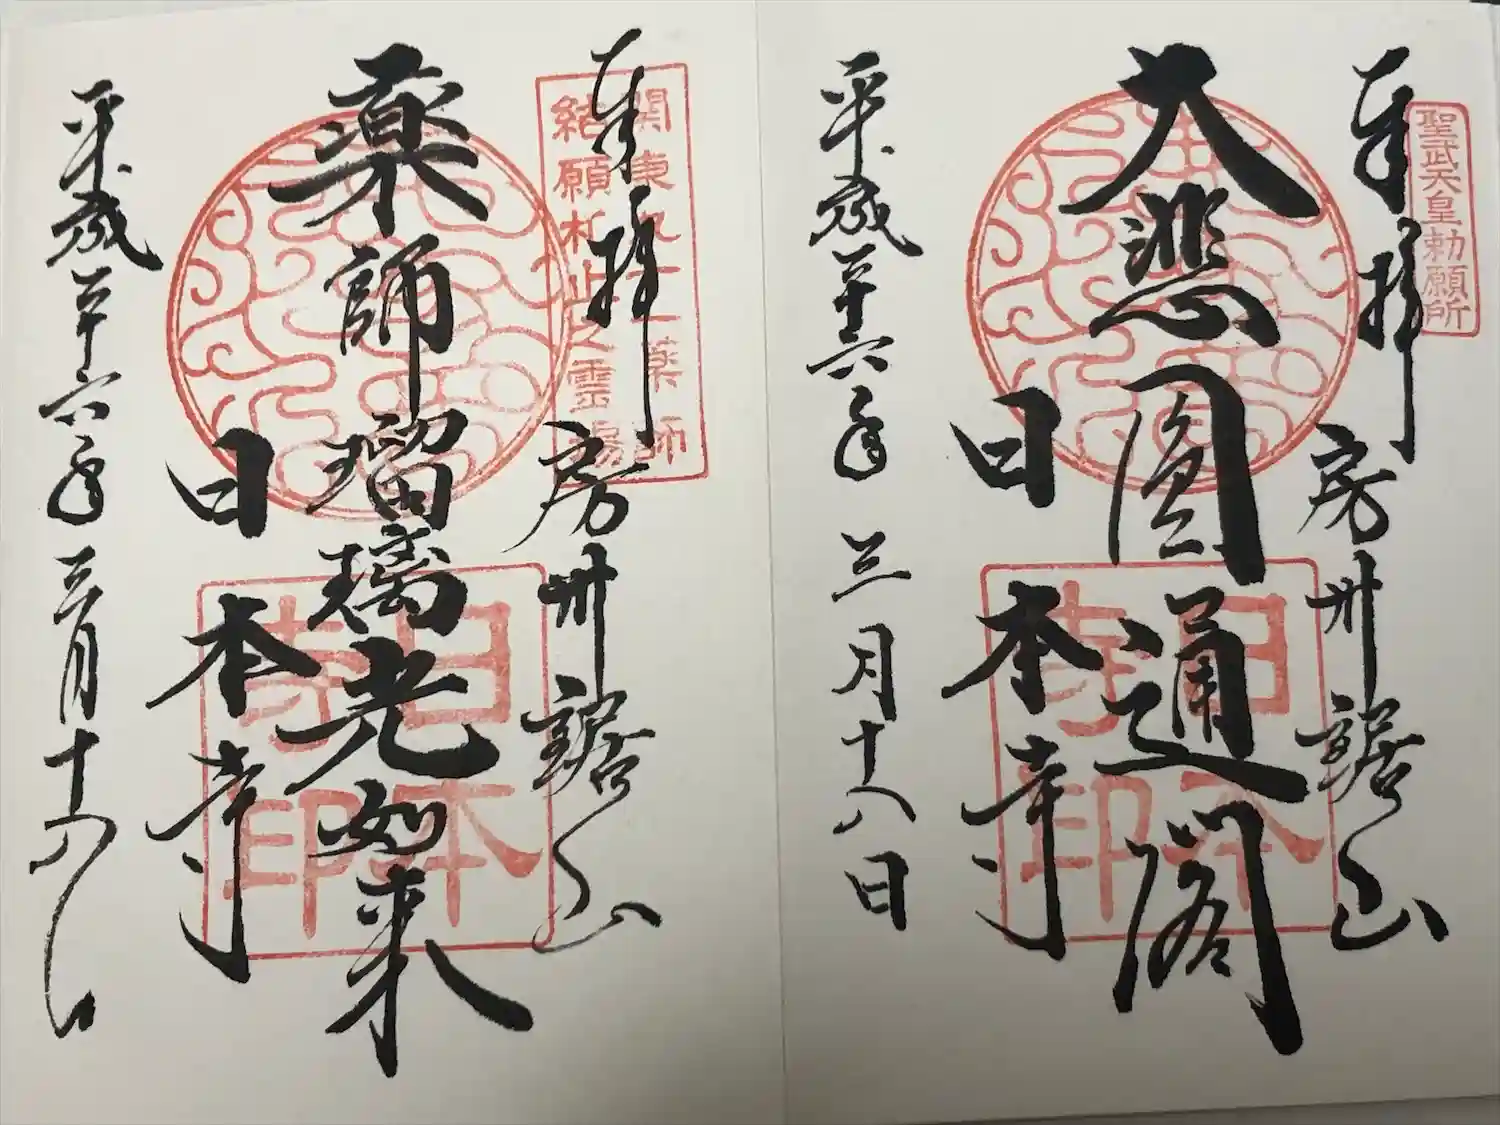 聖武天皇勅願所
奉拝
房州鋸山
大悲圓通閣
日本寺
平成二十六年 三月十八日
日本
寺印
関東九十一薬師
結願札止之霊場
奉拝
房州鋸山
薬師瑠璃光如来
日本寺
平成二十六年 三月十八日
日本
寺印